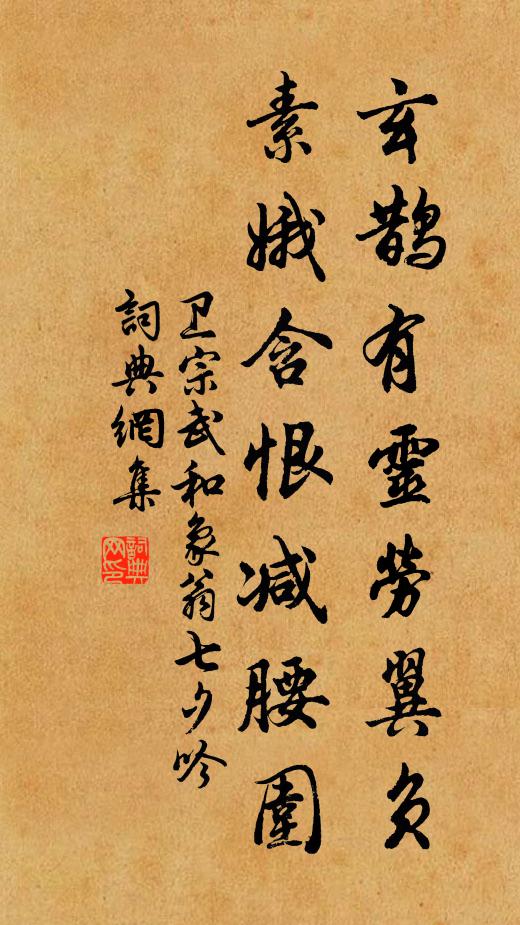 玄鵲有靈勞翼負
素娥含恨減腰圍
卫宗武和象翁七夕吟
詞典網集
詞典网印